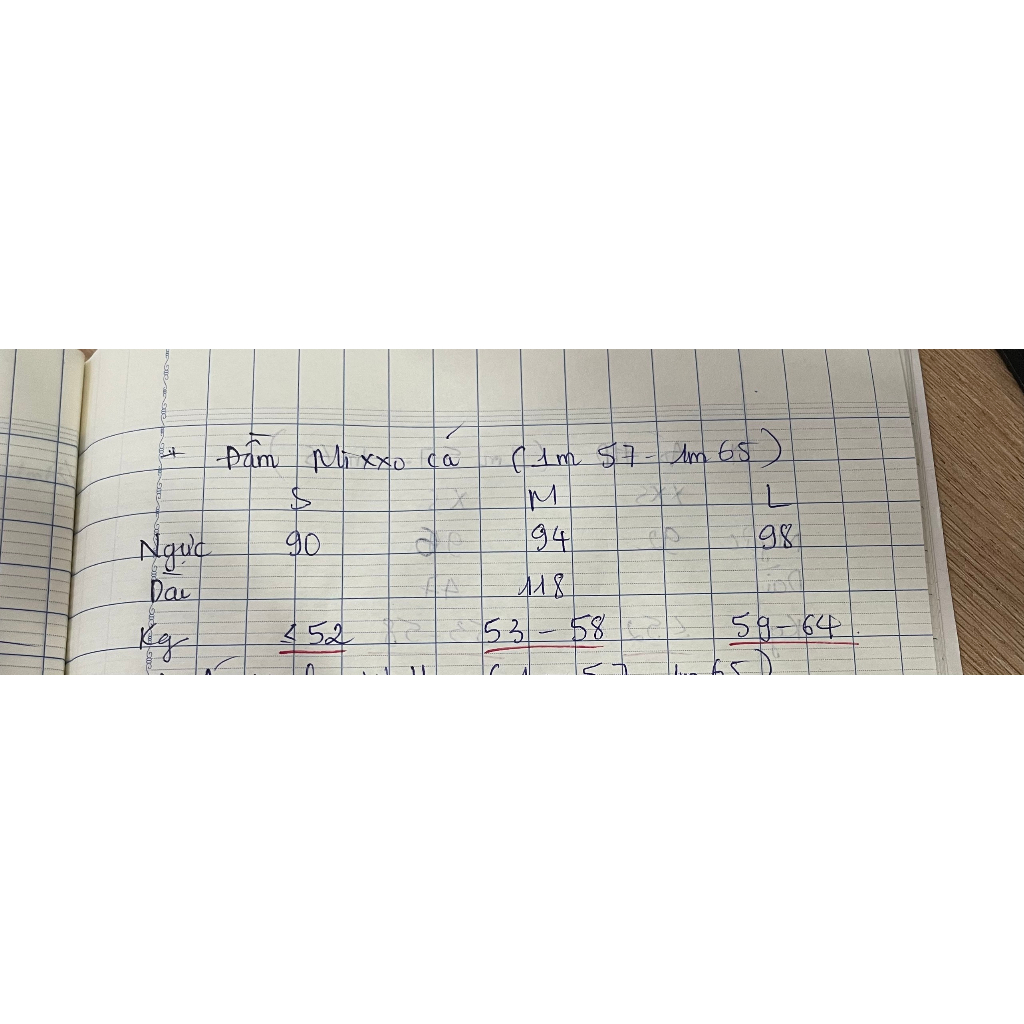 + Đầm Mixxo cá (1m 57 - 1m 65)
S M L
Ngực 90 94 98
Dài 118
Kg ≤ 52 53 - 58 59 - 64